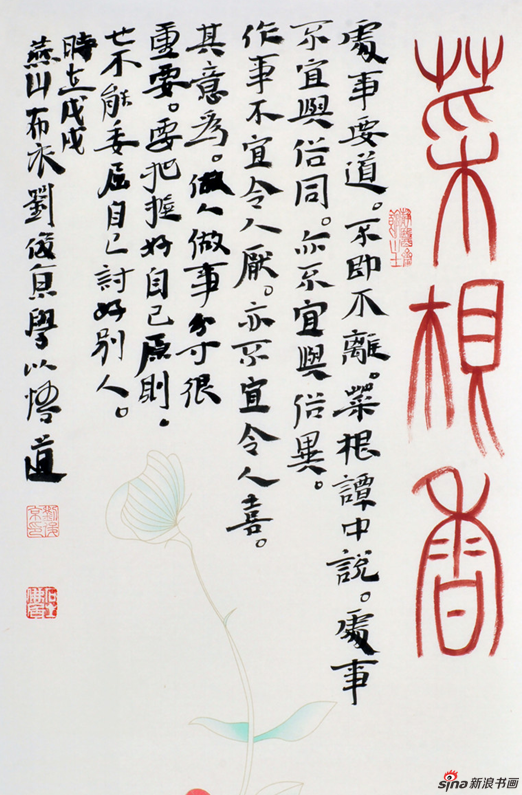 菜根香
處事要道。不即不離。菜根譚中說。處事
不宜與俗同。亦不宜與俗異。
作事不宜令人厭。亦不宜令人喜。
其意為。做人做事分寸很
重要。要把握好自己原則．
也不能委屈自己討好別人。
時在戊戌
燕山布衣劉俊京學以悟道
sina新浪书画